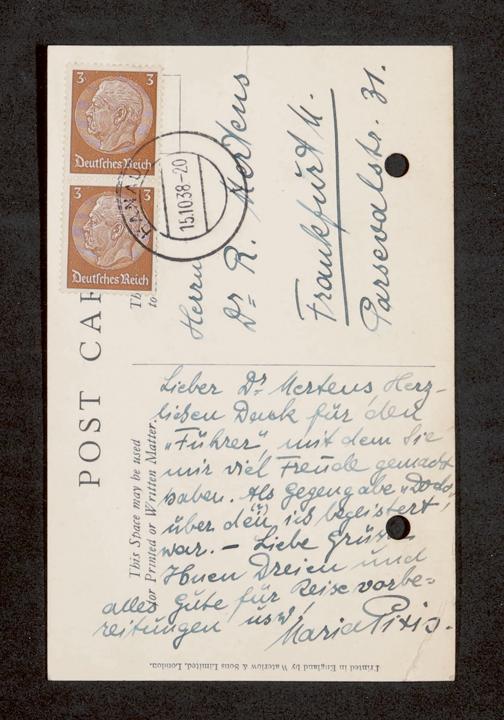 3 3
Deutsches Reich
3 3
Deutsches Reich
HANAU
15.10.38-20
POST CAR
Th
to
Herrn
Dr= R. Mertens
Frankfurt M.
Parsevalstr. 31.
This Space may be used
for Printed or Written Matter.
Lieber Dr Mertens Herz-
lichen Dank für den
„Führer", mit dem Sie
mir viel Freude gemacht
haben. Als Gegengabe „Dodo"
über den ich begeistert
(!)
war. – Liebe Grüsse
Ihnen Dreien und
alles Gute für Reisevorbe-
reitungen usw!
Maria Pixis.
Printed in England by Waterlow & Sons Limited, London.